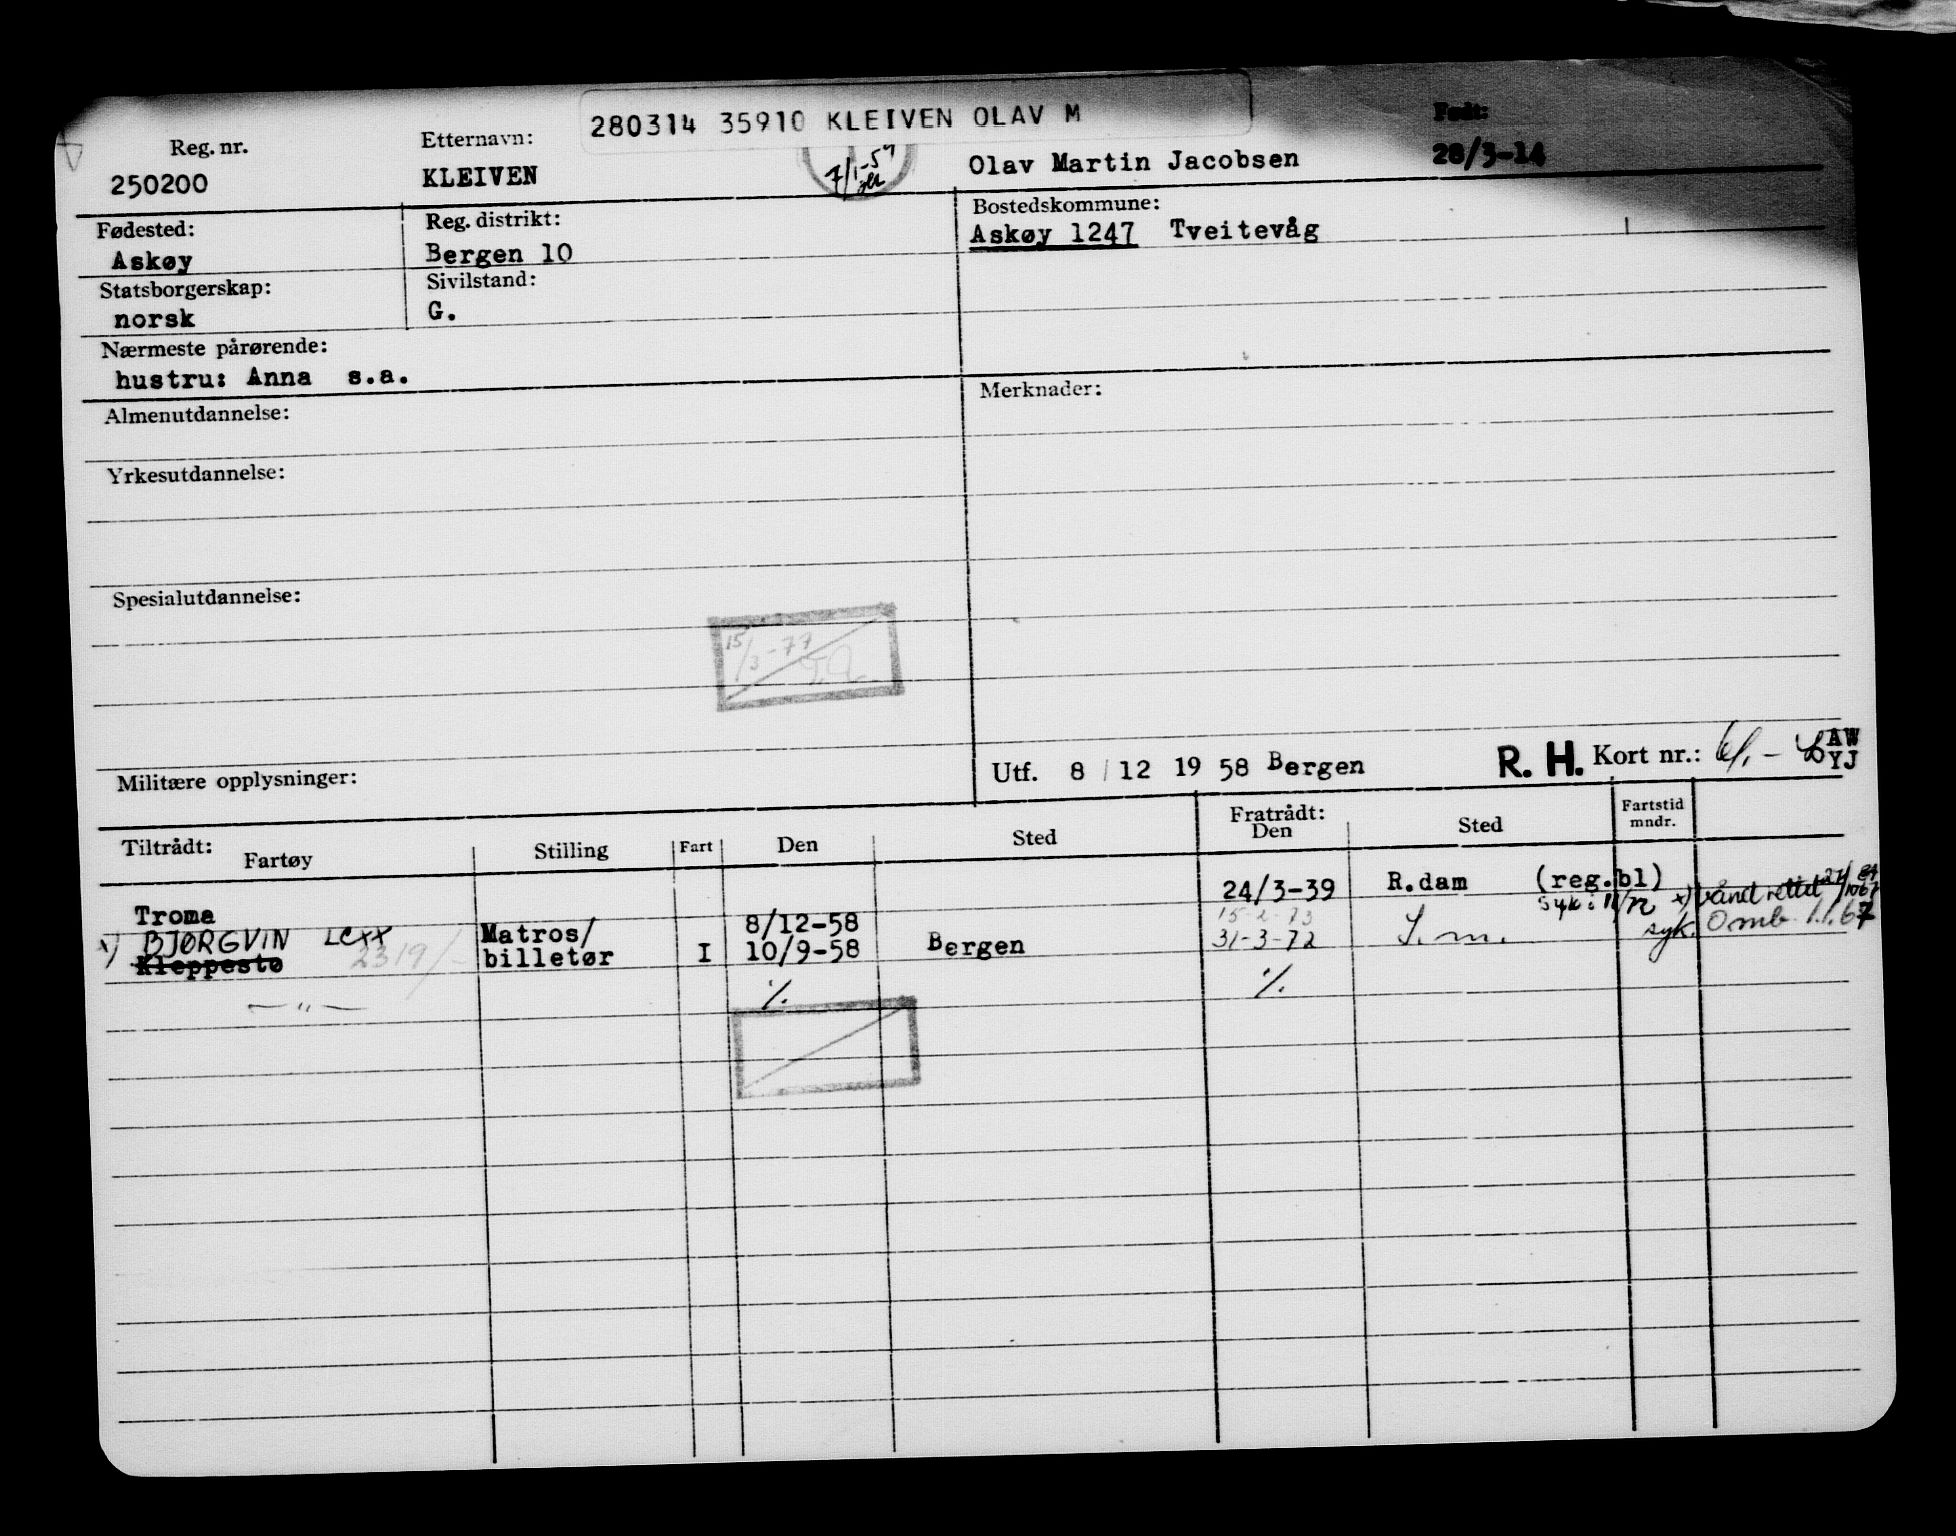 280314 35910 KLEIVEN OLAV M
Reg. nr. Etternavn: Født:
250200 KLEIVEN 7/1-59 Olav Martin Jacobsen 28/3-14
Fødested: Reg. distrikt: Bostedskommune:
Askøy Bergen 10 Askøy 1247 Tveitevåg
Statsborgerskap: Sivilstand:
norsk G.
Nærmeste pårørende:
hustru: Anna s.a.
Almenutdannelse: Merknader:
Yrkesutdannelse:
Spesialutdannelse:
15/3-77
Militære opplysninger: Utf. 8/12 19 58 Bergen R. H. Kort nr.: AW
YJ
Tiltrådt: Fratrådt: Fartstid
Fartøy Stilling Fart Den Sted Den Sted mndr.
Troma 24/3-39 R.dam (reg.bl)
x) BJØRGVIN LCXX Matros/ 8/12-58 15-2-73 syk: x)
Kleppestø 2319/- billetør I 10/9-58 Bergen 31-3-72 S.m. syk. Omb. 1.1.67
— " — ٪ ٪